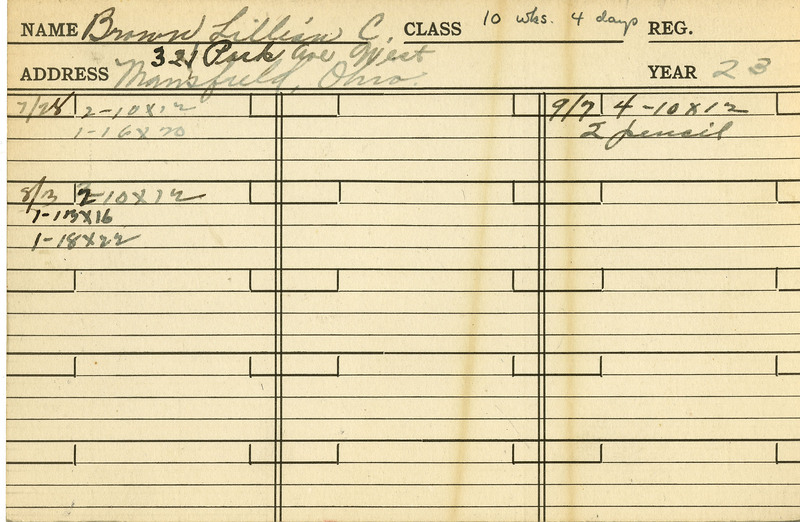 NAME Brown Lillian C. CLASS 10 wks. 4 days REG.
ADDRESS 321 Park Ave West
Mansfield, Ohio. YEAR 23
7/28 2-10x12
1-16x20
9/7 4-10x12
2 pencil
8/3 2-10x12
1-13x16
1-18x22